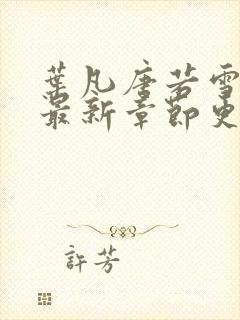 葉凡唐若雪
最新章節更
許芳